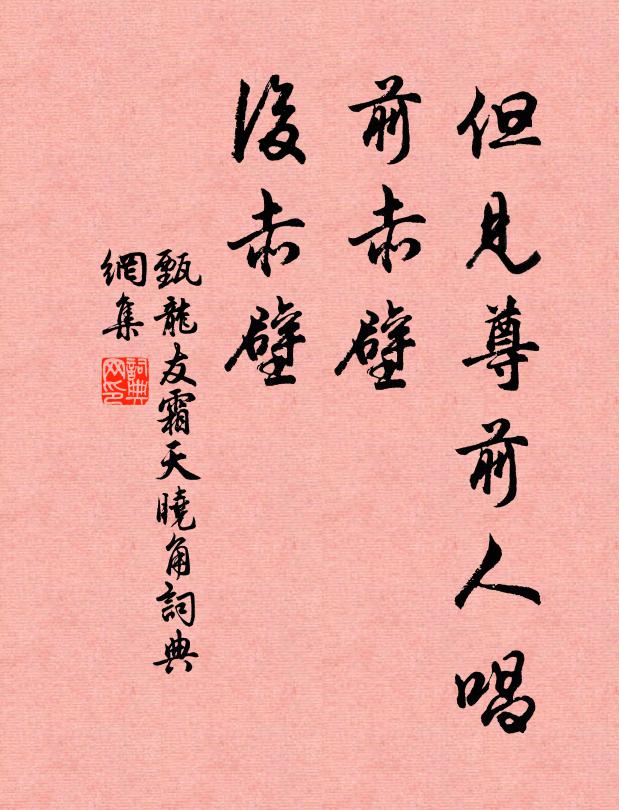 但見尊前人唱
前赤壁
後赤壁
甄龍友霜天曉角詞典
網集
詞典
网印